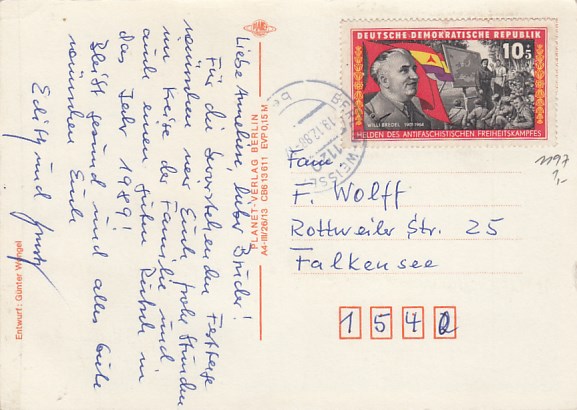 Liebe Annelise, lieber Bruder!
Für die bevorstehenden Festtage
wünschen wir Euch frohe Stunden
im Kreise der Familie und
auch einen guten Rutsch in
das Jahr 1989!
Bleibt gesund und alles Gute
wünschen Euch
Edith und
Entwurf: Günter Wongel
PLANET-VERLAG BERLIN
A4-III/26/13 CB6 13611 EVP 0,15 M
PLANET
DEUTSCHE DEMOKRATISCHE REPUBLIK
10+5
WILLI BREDEL 1901-1964
HELDEN DES ANTIFASCHISTISCHEN FREIHEITSKAMPFES
19.12.88
1120
WEISSE
Fam
F. Wolff
Rottweiler Str. 25
Falkensee
1542
1197
1,-